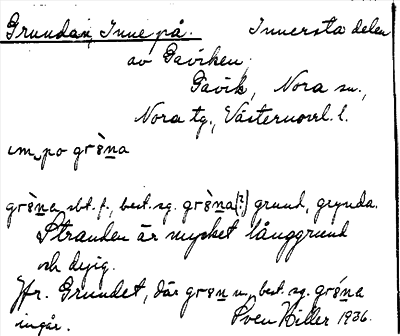 Grundan, Inne på. Innersta delen
av Gaviken.
Gavik, Nora sn.,
Nora tg., Västernorrl. l.
sbt. f., best. sg. grund, grynda.
Stranden är mycket långgrund
och dyig.
Jfr. Grundet, där best. sg.
ingår. Sven Hiller 1936.